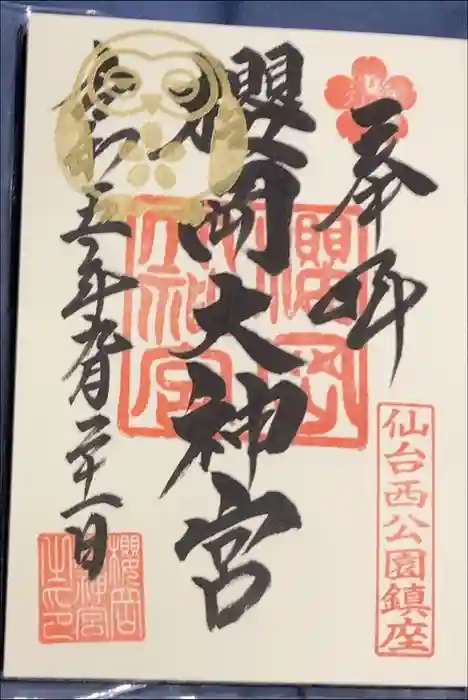 奉拝
櫻岡大神宮
令和五年九月二十一日
仙台西公園鎮座
櫻岡
大神宮
櫻岡
大神宮
之印